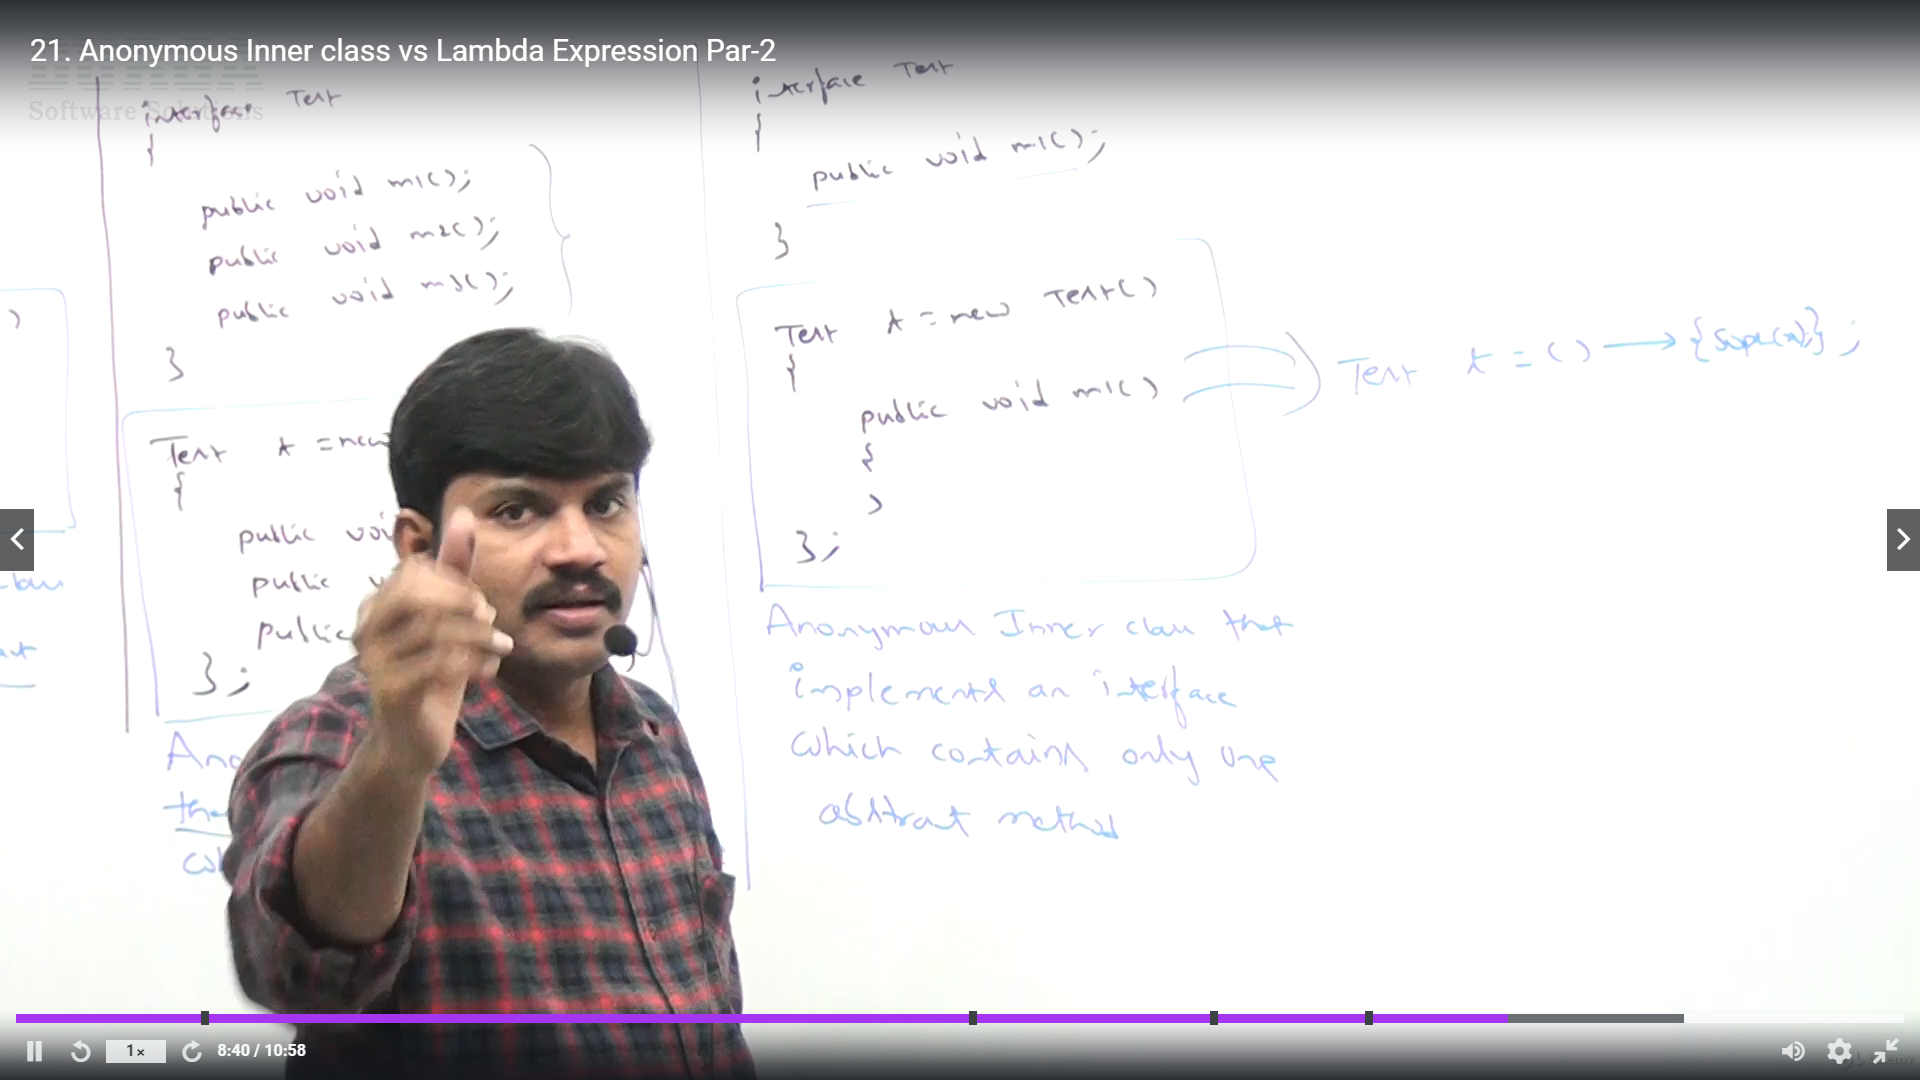 21. Anonymous Inner class vs Lambda Expression Par-2
Software Solutions
interface Test
{
public void m1();
public void m2();
public void m3();
}
Test t = new
{
public voi
public
public
};
Ano
)
interface Test
{
public void m1();
}
Test t = new Test()
{
public void m1()
{
}
};
Test t = () → {Sopln(" ");} ;
Anonymous Inner class that
implements an interface
which contains only one
abstract method
1x
8:40 / 10:58